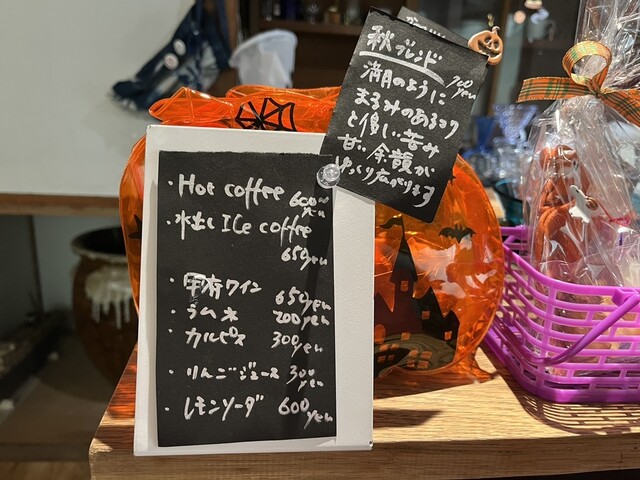 秋ブレンド
700yen
満月のように
まるみのあるコク
と優しい苦み
甘い余韻が
ゆっくり広がります
・Hot coffee 600yen
・水出しICe coffee
650yen
・甲府ワイン 650yen
・ラムネ 200yen
・カルピス 300yen
・りんごジュース 300yen
・レモンソーダ 600yen